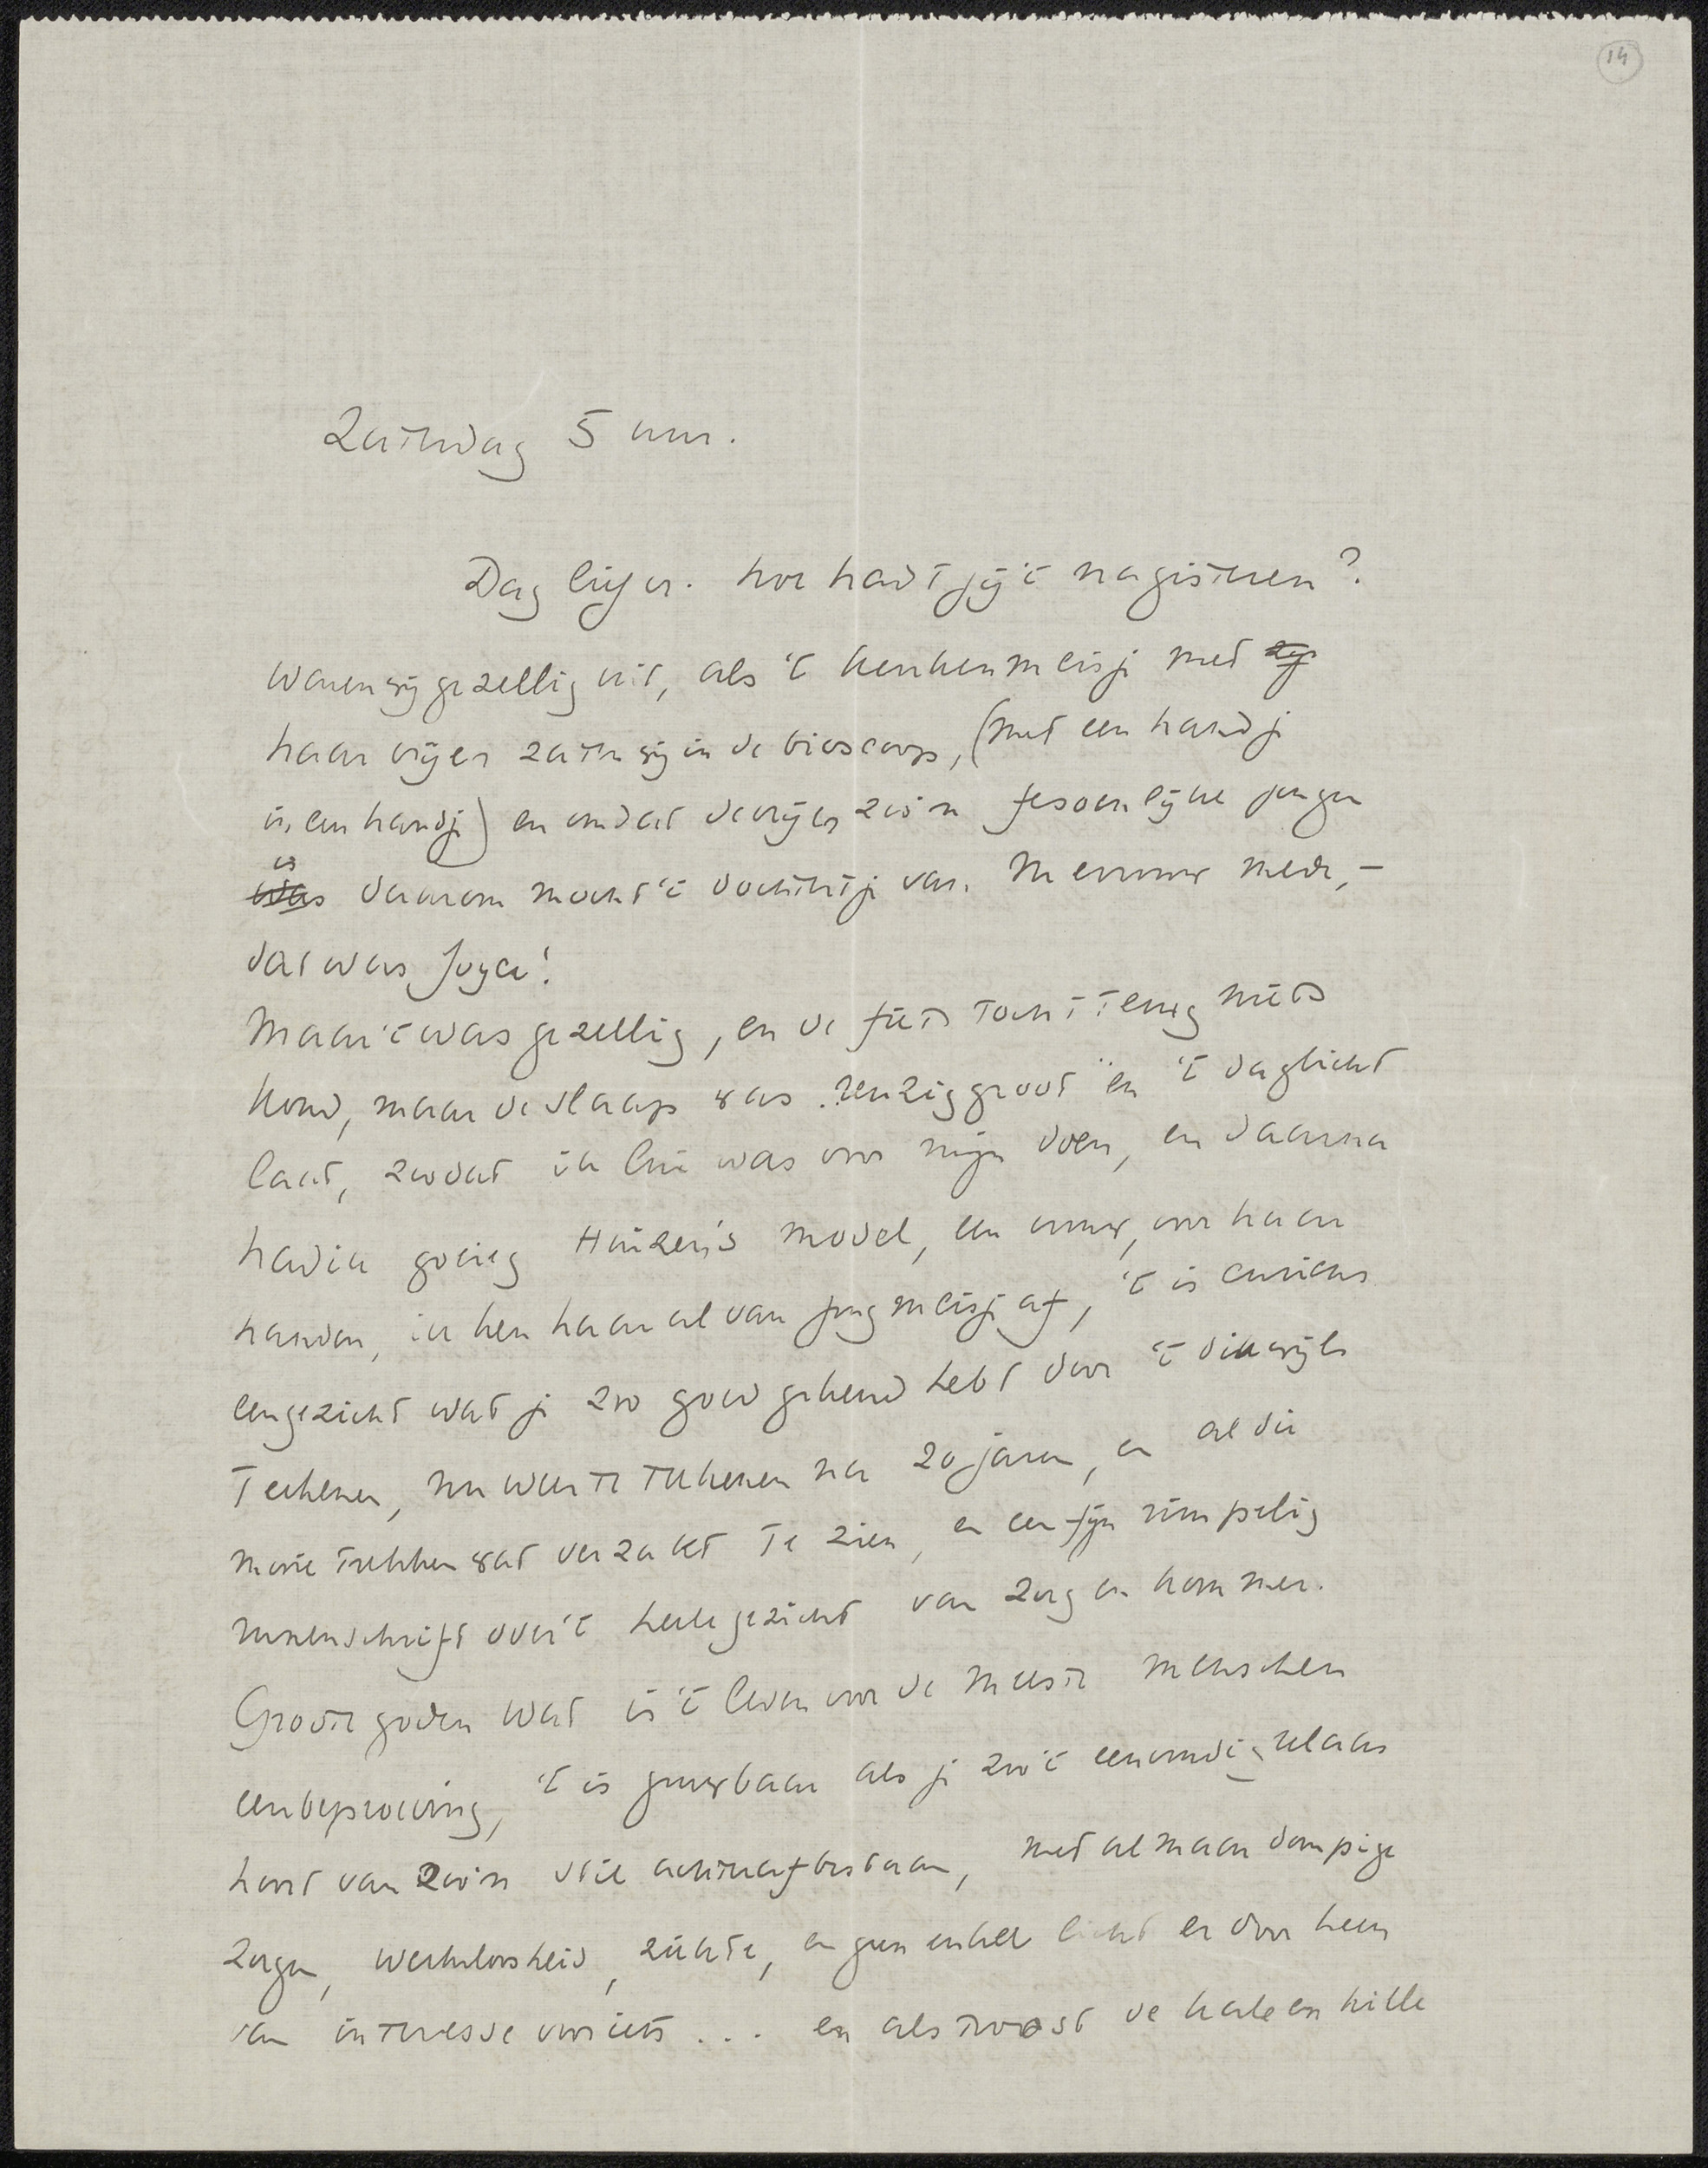 14
Zaterdag 5 uur.
Dag lieger. hoe hadt jij 't na gisteren?
waren wij gezellig uit, als 't keukenmeisje met zijn
haar vrijer zaten wij in de bioscoop, (met een handje
in een handje) en omdat de vrijer zoo'n fesoenlijke jongen
is
was daarom mocht 't dochtertje van Mevrouw mede, –
dat was Joyce!
Maar 't was gezellig, en de fiets tocht terug niets
koud, maar de slaap was reuzig groot en 't daglicht
laat, zoodat ik lui was voor mijn doen, en daarna
had ik gewoon Huizer's model, een vrouw, voor haar
handen, ik ken haar al van jong meisje af, 't is curieus
een gezicht wat je zoo goed gekend hebt door 't dikwijls
teekenen, nu weer te teekenen na 20 jaren, en al die
mooie trekken wat verzakt te zien, en een fijn rimpelig
runenschrift over 't heele gezicht van zorg en kommer.
Groote goden wat is 't leven voor de meeste menschen
een beproeving, 't is gruwbaar als je zoo 't eenvoudig relaas
hoort van zoo'n stil achterafbestaan, met almaar dompige
zorgen, werkeloosheid, ziekte, en geen enkel licht er door heen
van interesse voor iets ... en als troost de kale en kille